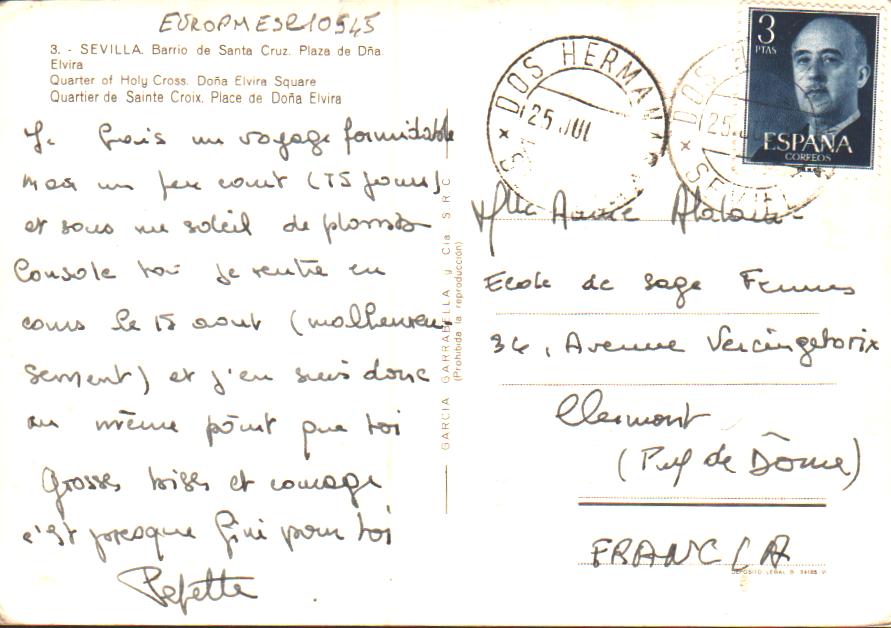 EUROPMESP10545
3. - SEVILLA. Barrio de Santa Cruz. Plaza de Dña
Elvira
Quarter of Holy Cross. Doña Elvira Square
Quartier de Sainte Croix. Place de Doña Elvira
Je fais un voyage formidable
mais un peu court (15 jours)
et sous un soleil de plomb
Console toi je rentre en
cours le 15 aout (malheureu
sement) et j'en suis donc
au même point que toi
Grosses bises et courage
c'est presque fini pour toi
Pepette
GARCIA GARRABELLA y Cia S.R.C.
(Prohibida la reproducción)
DOS HERMANAS
25 JUL
DOS
25 JUL
SEVILLA
3
PTAS
ESPAÑA
CORREOS
Mlle Annie
Ecole de sage Femmes
34, Avenue Vercingetorix
Clermont
(Puy de Dôme)
FRANCIA
DEPOSITO LEGAL B.